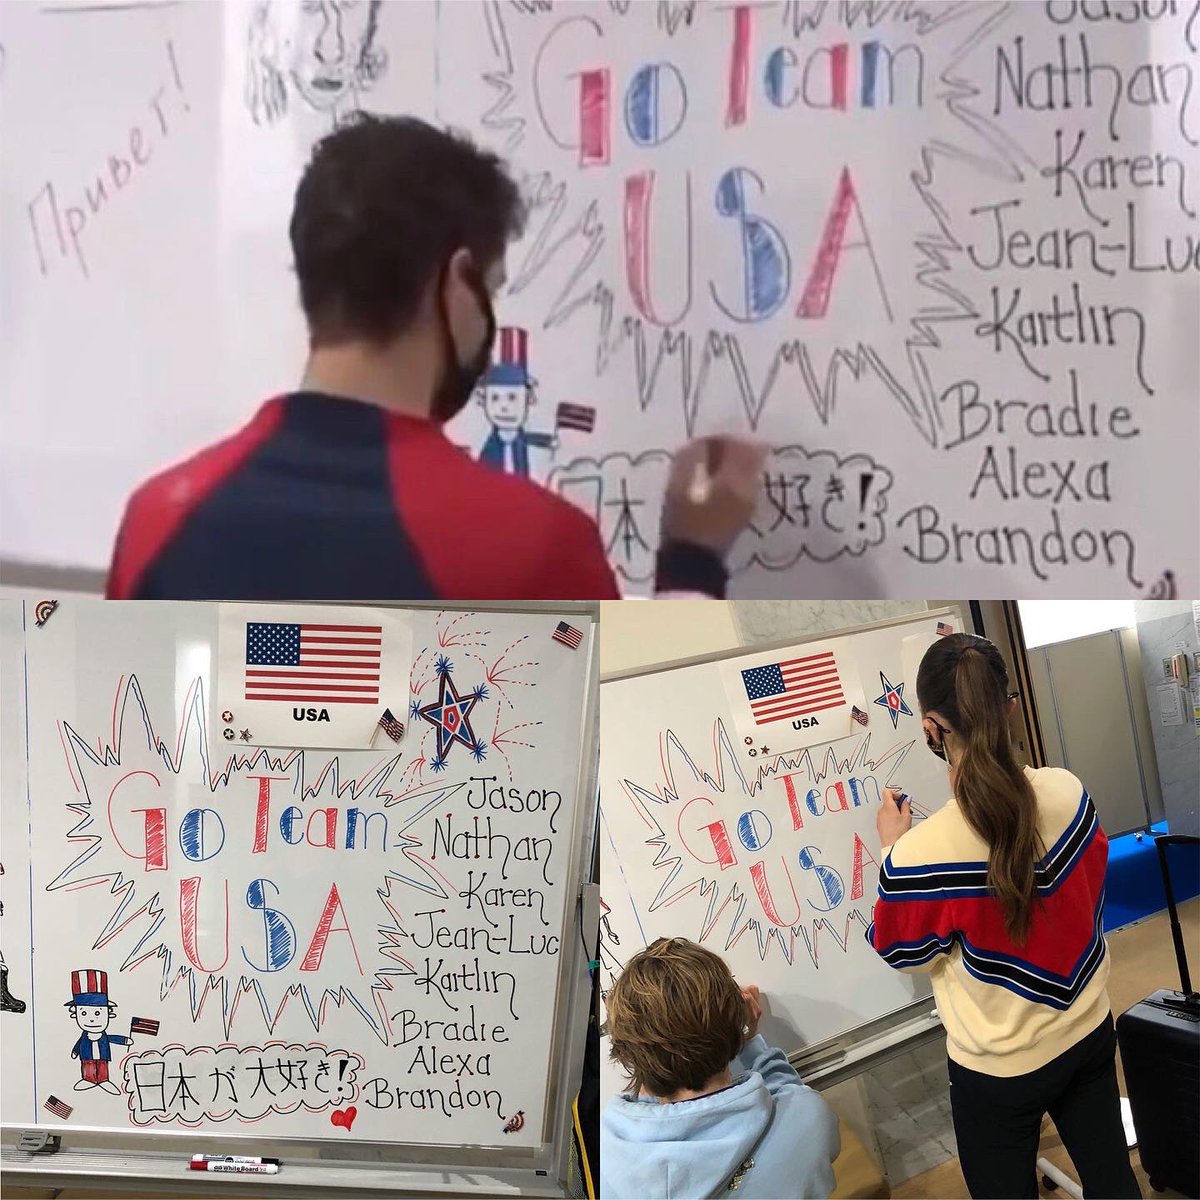 Привет!
Go Team
USA
Jason
Nathan
Karen
Jean-Luc
Kaitlin
Bradie
Alexa
Brandon
日本 大好き!
USA
Go Team
USA
Jason
Nathan
Karen
Jean-Luc
Kaitlin
Bradie
Alexa
Brandon
日本が大好き!
WhiteBoard
USA
Go Team
USA